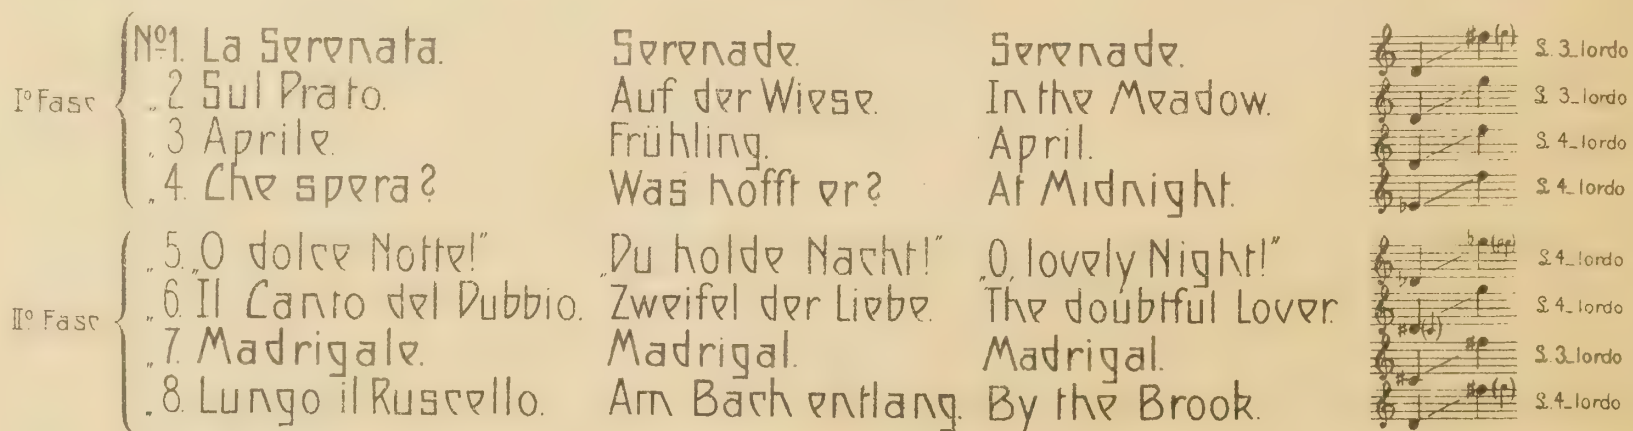 Iº Fasc
Nº1. La Serenata. Serenade. Serenade. S. 3_lordo
„ 2 Sul Prato. Auf der Wiese. In the Meadow. S. 3_lordo
„ 3 Aprile. Frühling. April. S. 4_lordo
„ 4. Che spera? Was hofft er? At Midnight. S. 4_lordo
IIº Fasc
„ 5. „O dolce Notte!” „Du holde Nacht!” „O, lovely Night!” S. 4_lordo
„ 6. Il Canto del Dubbio. Zweifel der Liebe. The doubtful Lover. S. 4_lordo
„ 7. Madrigale. Madrigal. Madrigal. S. 3_lordo
„ 8. Lungo il Ruscello. Am Bach entlang. By the Brook. S. 4_lordo